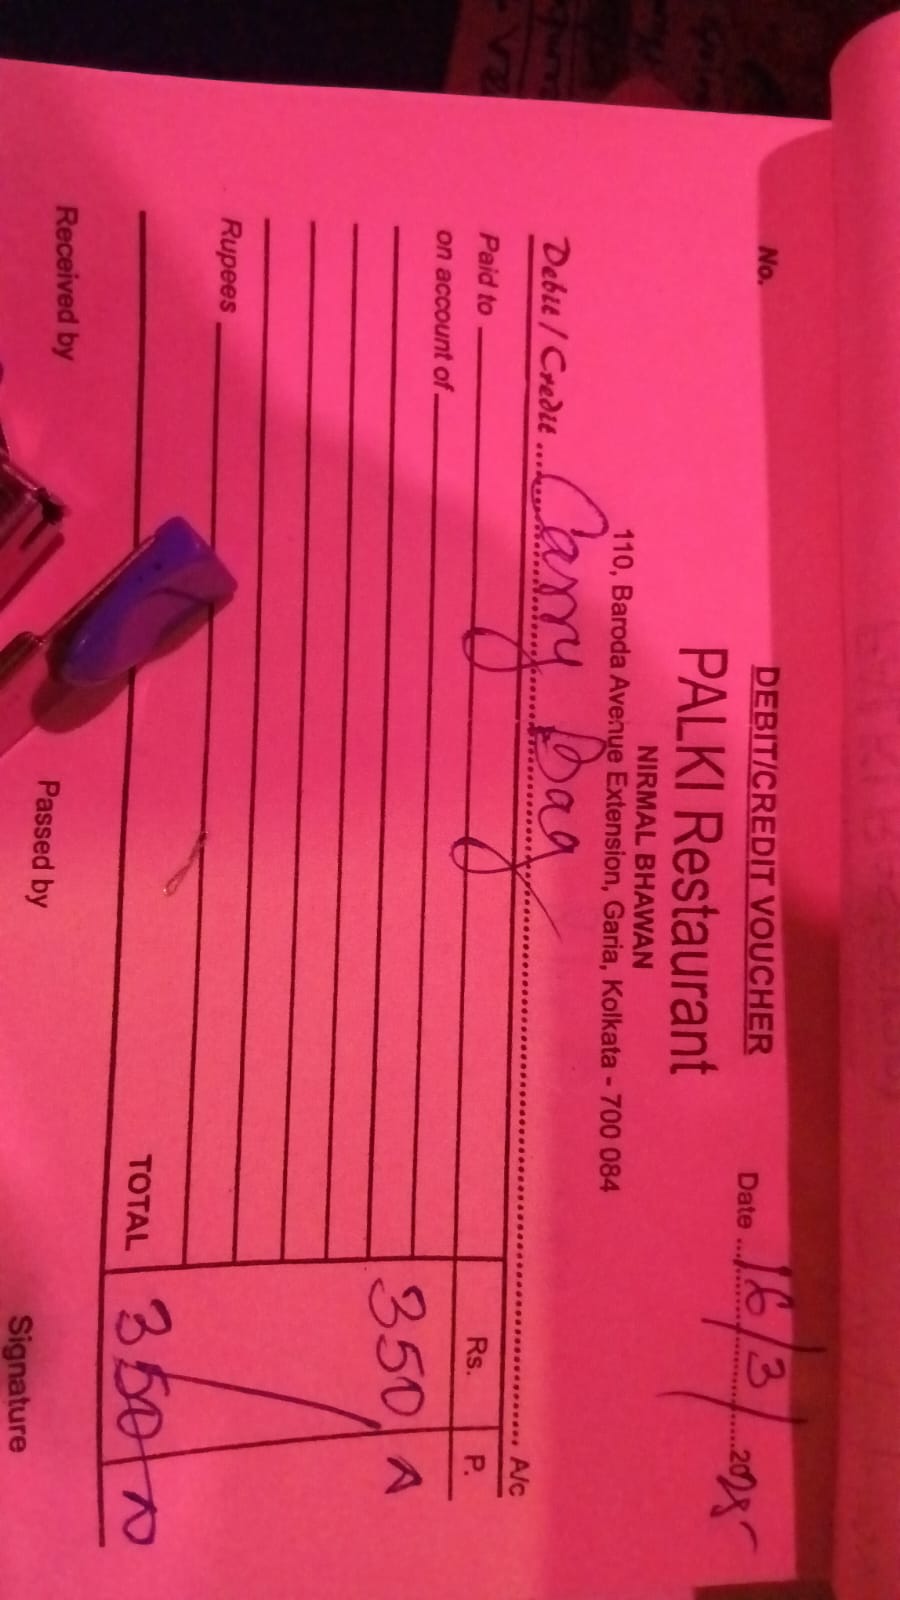 DEBIT/CREDIT VOUCHER
No.
Date 16/3/2025
PALKI Restaurant
NIRMAL BHAWAN
110, Baroda Avenue Extension, Garia, Kolkata - 700 084
Debit / Credit Carry Bag A/c
Paid to Rs. P.
on account of
350
Rupees
TOTAL 350
Received by Passed by Signature